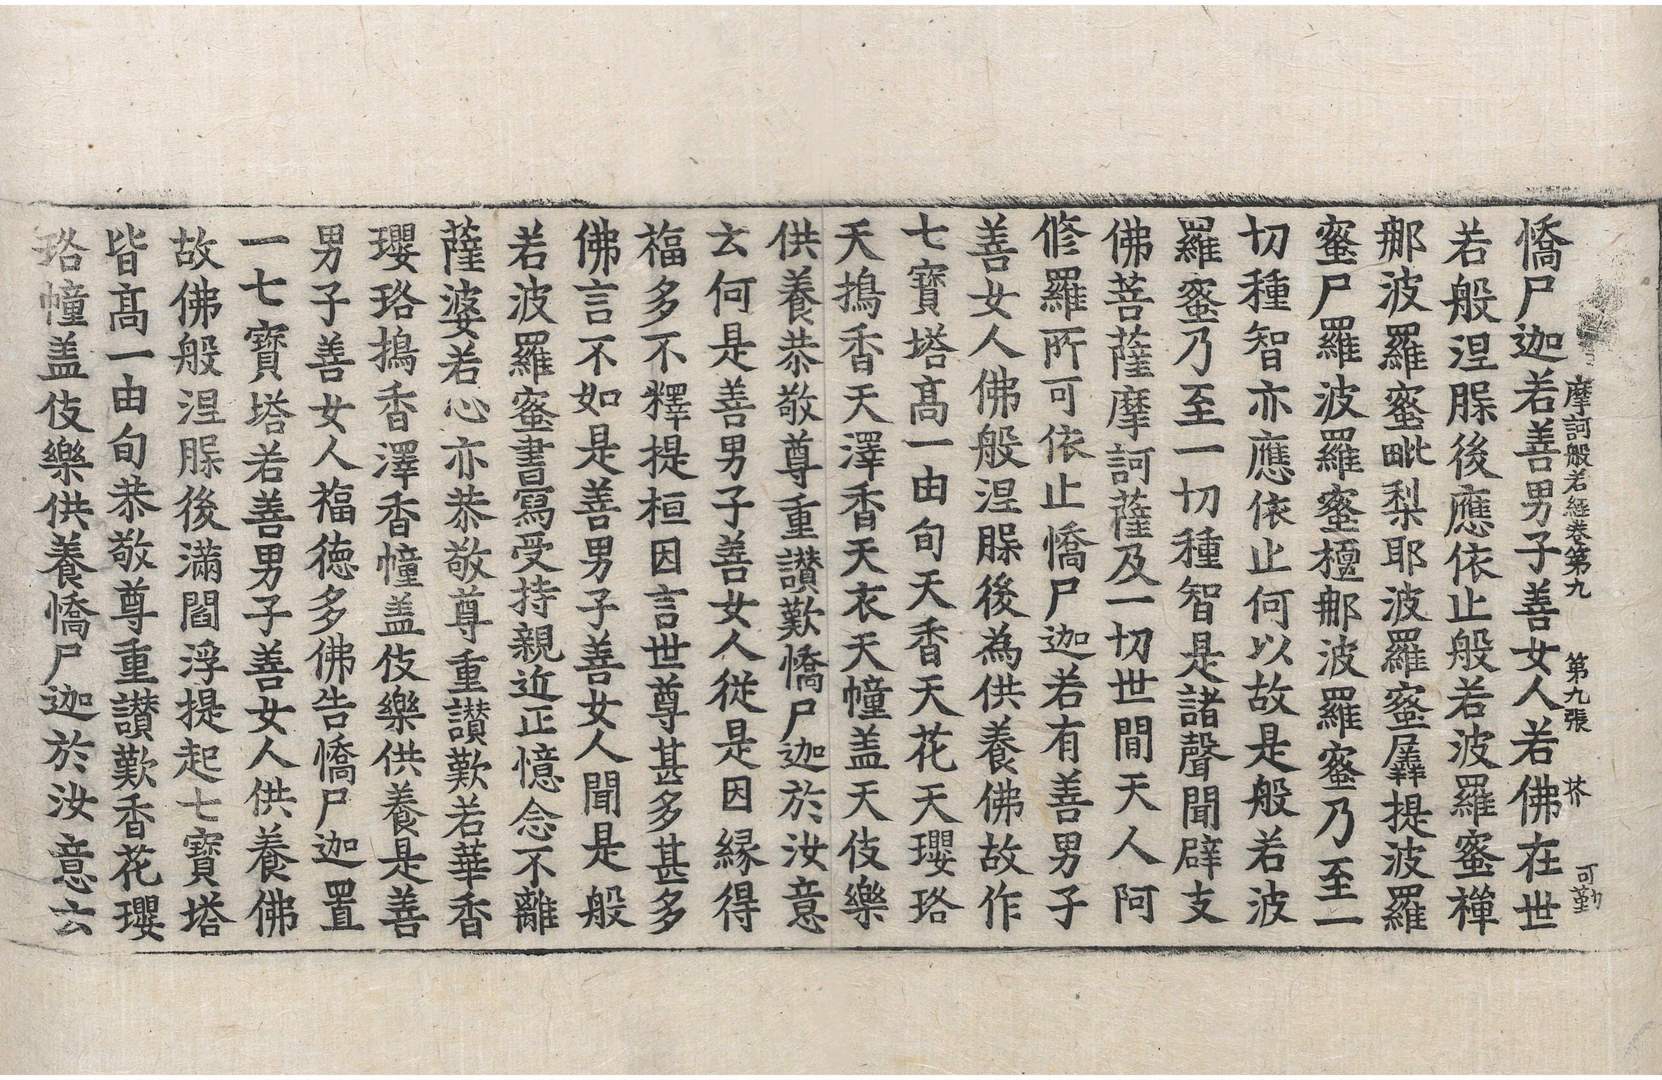 摩訶般若経卷第九 第九張 芥 可勤
憍尸迦若善男子善女人若佛在世
若般涅𦜝後應依止般若波羅蜜禪
那波羅蜜毗梨耶波羅蜜羼提波羅
蜜尸羅波羅蜜檀那波羅蜜乃至一
切種智亦應依止何以故是般若波
羅蜜乃至一切種智是諸聲聞辟支
佛菩薩摩訶薩及一切世閒天人阿
修羅所可依止憍尸迦若有善男子
善女人佛般涅𦜝後為供養佛故作
七寶塔髙一由旬天香天花天瓔珞
天擣香天澤香天衣天幢盖天伎樂
供養恭敬尊重讃歎憍尸迦於汝意
云何是善男子善女人從是因縁得
福多不釋提桓因言世尊甚多甚多
佛言不如是善男子善女人聞是般
若波羅蜜書寫受持親近正憶念不離
薩婆若心亦恭敬尊重讃歎若華香
瓔珞擣香澤香幢盖伎樂供養是善
男子善女人福德多佛告憍尸迦置
一七寶塔若善男子善女人供養佛
故佛般涅𦜝後滿閻浮提起七寶塔
皆髙一由旬恭敬尊重讃歎香花瓔
珞幢盖伎樂供養憍尸迦於汝意云